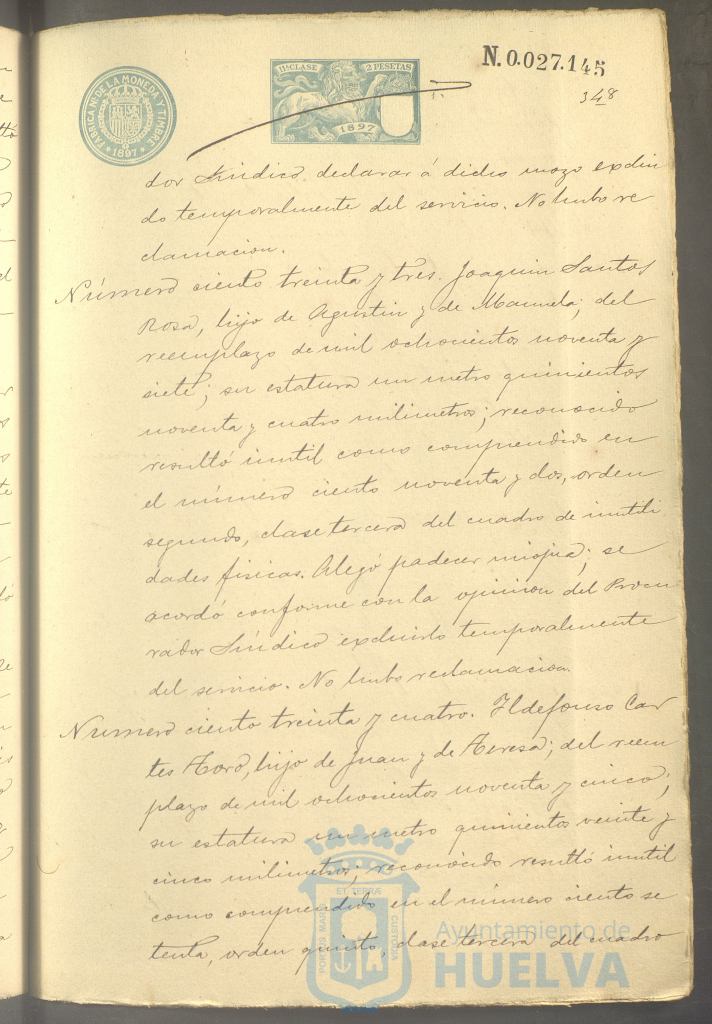 N. 0.027.145
11ª CLASE
2 PESETAS
1897
FABRICA Nl. DE LA MONEDA Y TIMBRE
*1897*
348
dor Sindico declarar á dicho mozo exclui
do temporalmente del servicio. No hubo re
clamacion.
Número ciento treinta y tres. Joaquin Santos
Rosa, hijo de Agustin y de Manuela; del
reemplazo de mil ochocientos noventa y
siete; su estatura un metro quinientos
noventa y cuatro milimetros; reconocido
resultó inutil como comprendido en
el número ciento noventa y dos, orden
segundo, clase tercera del cuadro de inutili
dades fisicas. Alegó padecer miopia; se
acordó conforme con la opinion del Procu
rador Síndico excluirlo temporalmente
del servicio. No hubo reclamacion.
Número ciento treinta y cuatro. Ildefonso Car
tes Toro, hijo de Juan y de Teresa; del reem
plazo de mil ochocientos noventa y cinco;
su estatura un metro quinientos veinte y
cinco milimetros; reconocido resultó inutil
como comprendido en el número ciento se
tenta, orden quinto, clase tercera del cuadro
PORTUS MARIS
ET TERRÆ
CUSTODIA
Ayuntamiento de
HUELVA